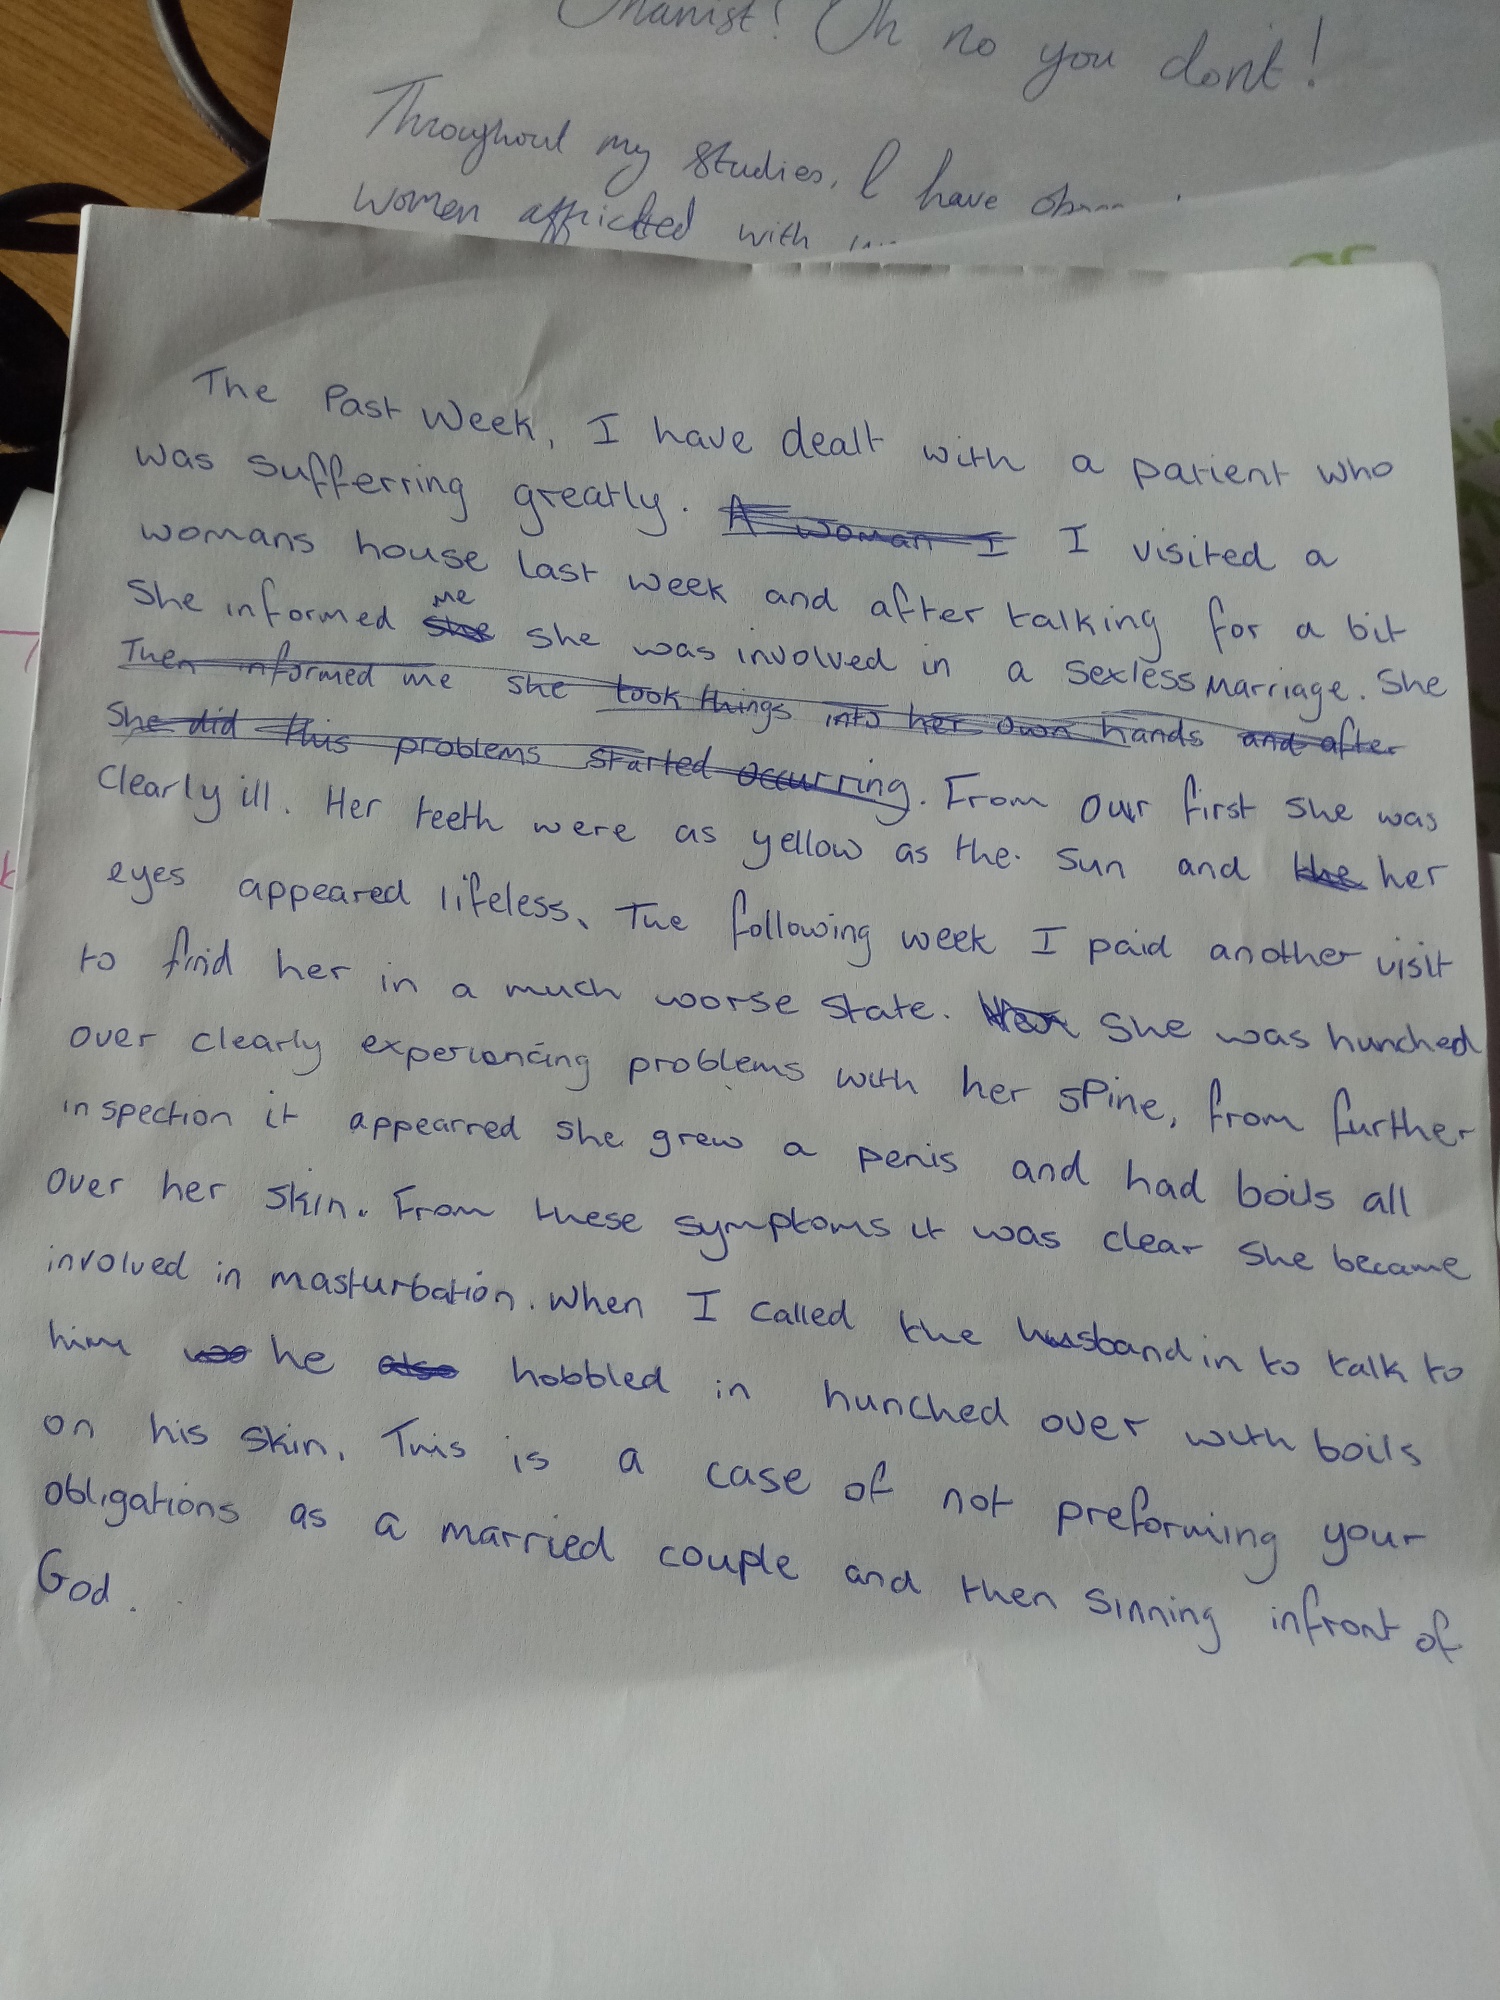 Onanist! Oh no you dont!
Throughout my studies, I have
women afflicted with
The Past Week, I have dealt with a patient who
was sufferring greatly. A woman I I visited a
womans house last week and after talking for a bit
She informed she me she was involved in a sexless marriage. She
Then informed me she took things into her own hands and after
She did this problems started occurring. From our first she was
Clearly ill. Her teeth were as yellow as the sun and the her
eyes appeared lifeless. The following week I paid another visit
to find her in a much worse state. Her She was hunched
over clearly experiencing problems with her spine, from further
inspection it appearred she grew a penis and had boils all
over her skin. From these symptoms it was clear she became
involved in masturbation. When I called the husband in to talk to
him was he also hobbled in hunched over with boils
on his skin. This is a case of not preforming your
obligations as a married couple and then sinning infront of
God.